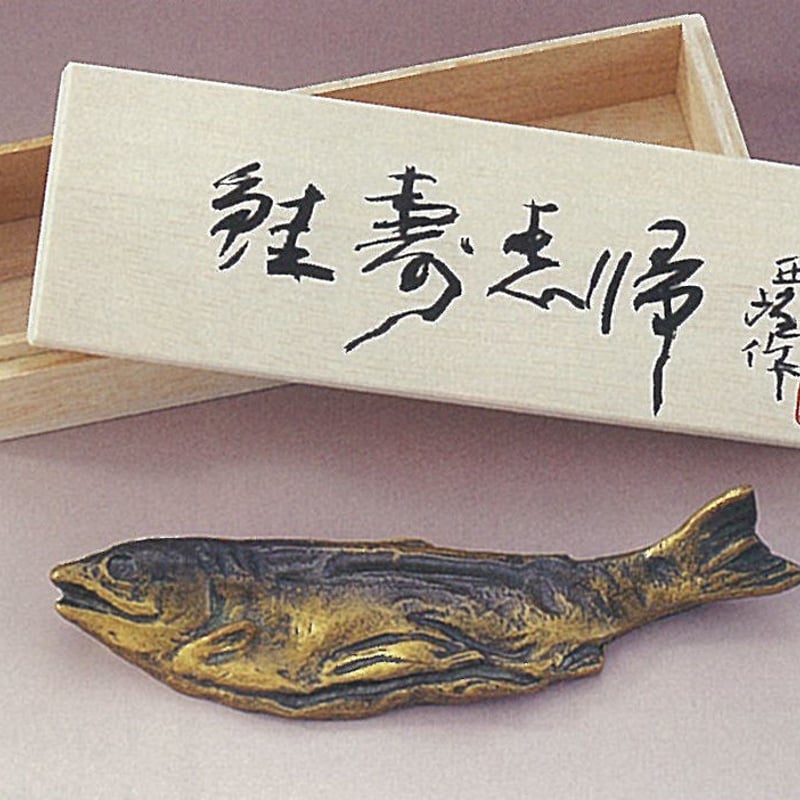 鮭壽志帰
作